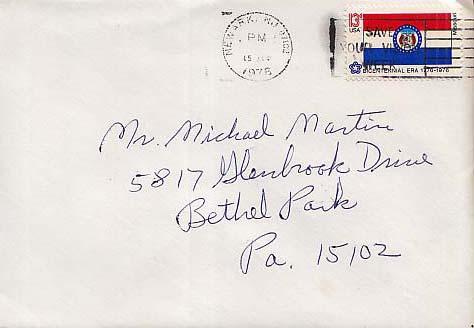 NEWARK, N.J.
PM
15
1976
13c
USA
Missouri
SAVE
YOUR VISION
WEEK
BICENTENNIAL ERA 1776-1976
Mr. Michael Martin
5817 Glenbrook Drive
Bethel Park
Pa. 15102